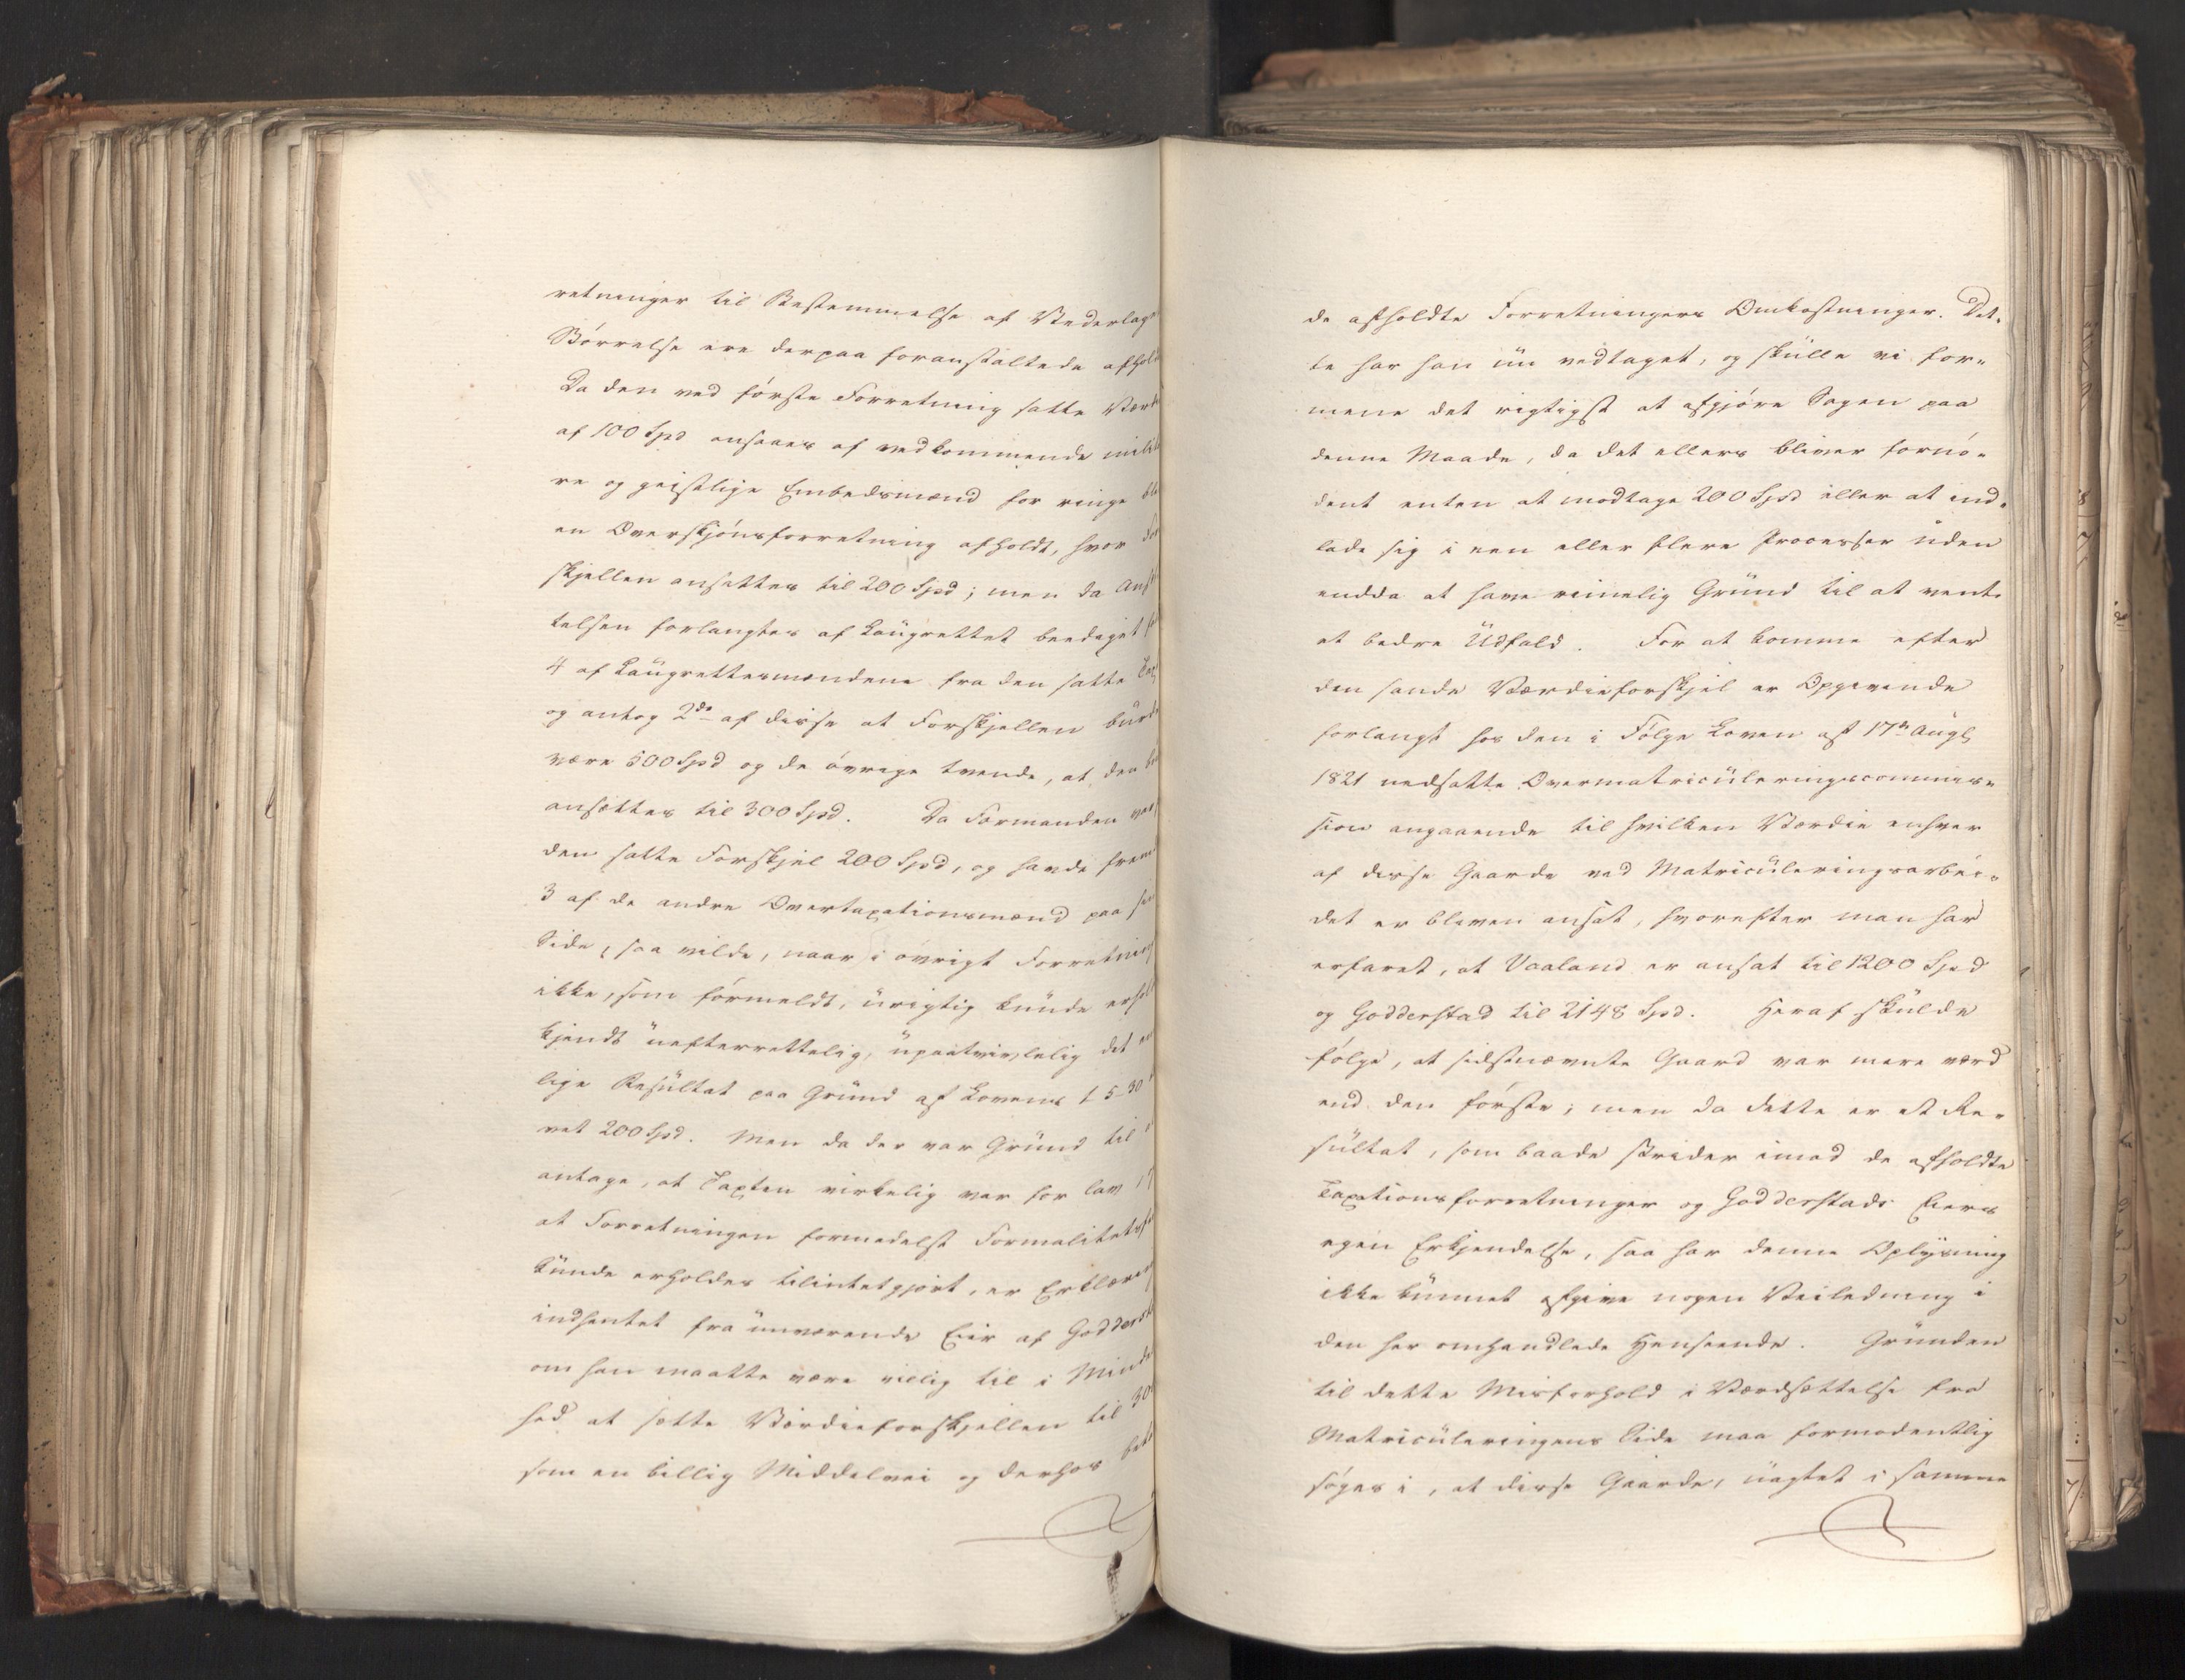 retninger til Bestemmelse af Vederlag
Størrelse ere derpaa foranstaltede afhol
Da den ved første Forretning satte Værd
af 100 Spd ansaaes af vedkommende milit
re og geistlige Embedsmænd for ringe ble
en Overskjønsforretning afholdt, hvor For
skjellen ansattes til 200 Spd; men da Ans
telsen forlangtes af Laugrettet beediget
4 af Laugrettesmændene fra den satte Tax
og antog 2de af disse at Forskjellen burde
være 600 Spd og de øvrige tvende, at den
ansættes til 300 Spd. Da Formanden
den satte Forskjel 200 Spd, og havde frem
3 af de andre Overtaxationsmænd paa sin
Side, saa vilde, naar i øvrigt Forretning
ikke, som formeldt, urigtig kunde erhol
kjendt uefterrettelig, upaatvivlelig det
lige Resultat paa Grund af Lovens 1-5-30
vet 200 Spd. Men da der var Grund til
antage, at Taxten virkelig var for lav
at Forretningen formedelst Formalitetsf
kunde erholdes tilintetgjort, er Erklæring
indhentet fra nuværende Eier af Godderst
om han maatte være villig til i Minde
hed at sætte Værdieforskjellen til 30
som en billig Middelvei og derhos beta
de afholdte Forretningers Omkostninger. Det-
te har han nu vedtaget, og skulle vi for-
mene det rigtigst at afgjøre Sagen paa
denne Maade, da det ellers bliver fornø-
dent enten at modtage 200 Spd eller at ind-
lade sig i een eller flere Processer uden
endda at have rimelig Grund til at vente
et bedre Udfald. For at komme efter
den sande Værdieforskjel er Opgivende
forlangt hos den i Følge Loven af 17de Augt
1821 nedsatte Overmatriculeringscommis-
sion angaaende til hvilken Værdie enhver
af disse Gaarde ved Matriculeringsarbei-
det er bleven ansat, hvorefter man har
erfaret, at Vaaland er ansat til 1200 Spd
og Godderstad til 2148 Spd. Heraf skulde
følge, at sidstnævnte Gaard var mere værd
end den første; men da dette er et Re-
sultat, som baade strider imod de afholdte
Taxationsforretninger og Godderstads Eiers
egen Erkjendelse, saa har denne Oplysning
ikke kunnet afgive nogen Veiledning i
den her omhandlede Henseende. Grunden
til dette Misforhold i Værdsættelse fra
Matriculeringens Side maa formodentlig
søges i, at disse Gaarde, uagtet i samme